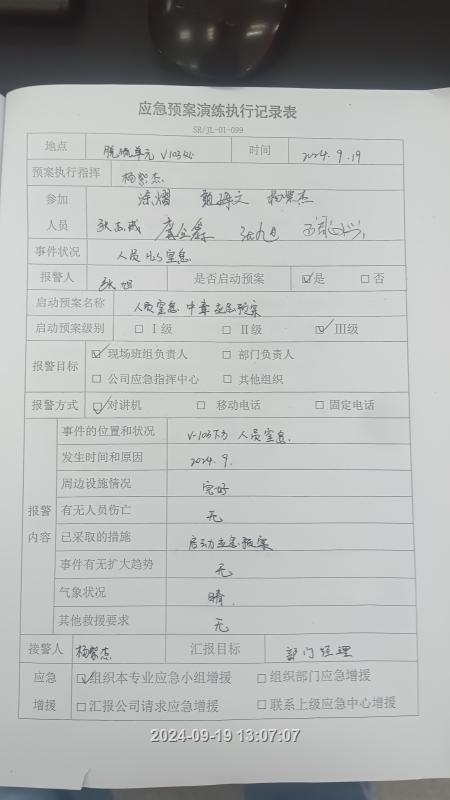 应急预案演练执行记录表
SR/JL-01-099
地点 脱硫单元 V103处 时间 2024.9.19
预案执行指挥 杨紫杰
参加 涂熠 杨紫杰
人员
事件状况 人员H2S窒息
报警人 张旭 是否启动预案 ☑是 □否
启动预案名称 人员窒息中毒应急预案
启动预案级别 □Ⅰ级 □Ⅱ级 ☑Ⅲ级
报警目标 ☑现场班组负责人 □部门负责人
□公司应急指挥中心 □其他组织
报警方式 ☑对讲机 □移动电话 □固定电话
报警内容
事件的位置和状况 V-103下方 人员窒息.
发生时间和原因 2024.9.
周边设施情况 完好
有无人员伤亡 无
已采取的措施 启动应急预案
事件有无扩大趋势 无
气象状况 晴.
其他救援要求 无
接警人 杨紫杰 汇报目标 部门经理
应急 ☑组织本专业应急小组增援 □组织部门应急增援
增援 □汇报公司请求应急增援 □联系上级应急中心增援
2024-09-19 13:07:07